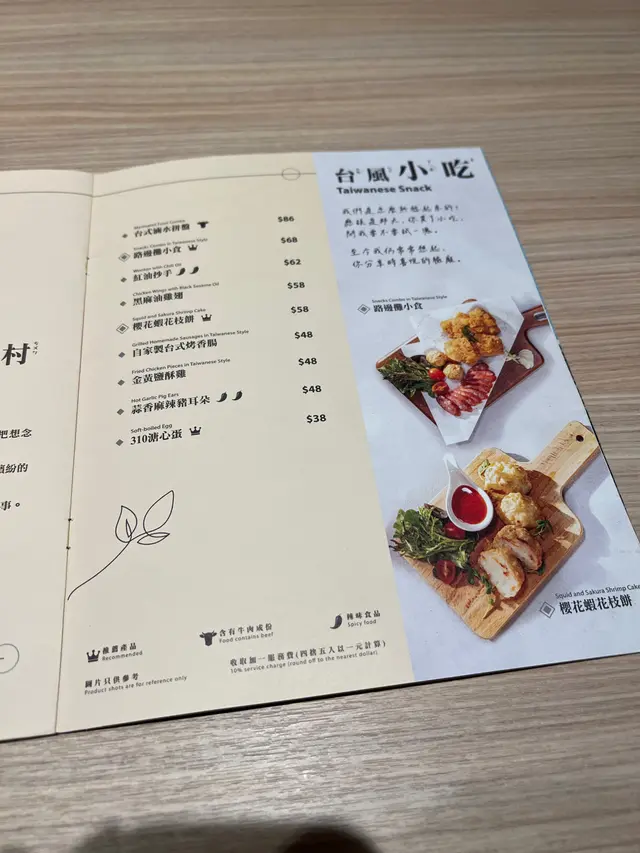 村
把想念
繽紛的
事。
Marinated Food Combo
台式滷水拼盤
$86
Snacks Combo in Taiwanese Style
路邊攤小食
$68
Wonton with Chili Oil
紅油抄手
$62
Chicken Wings with Black Sesame Oil
黑麻油雞翅
$58
Squid and Sakura Shrimp Cake
櫻花蝦花枝餅
$58
Grilled Homemade Sausages in Taiwanese Style
自家製台式烤香腸
$48
Fried Chicken Pieces in Taiwanese Style
金黃鹽酥雞
$48
Hot Garlic Pig Ears
蒜香麻辣豬耳朵
$48
Soft-boiled Egg
310溏心蛋
$38
推薦產品
Recommended
含有牛肉成份
Food contains beef
辣味食品
Spicy food
圖片只供參考
Product shots are for reference only
收取加一服務費(四捨五入以一元計算)
10% service charge (round off to the nearest dollar).
台風小吃
Taiwanese Snack
我們是怎麼熟起來的!
你買了小吃,
問我要不要試一塊。
至今我仍常常想起,
你分享時喜悅的
Snacks Combo in Taiwanese Style
路邊攤小食
Squid and Sakura Shrimp Cake
櫻花蝦花枝餅